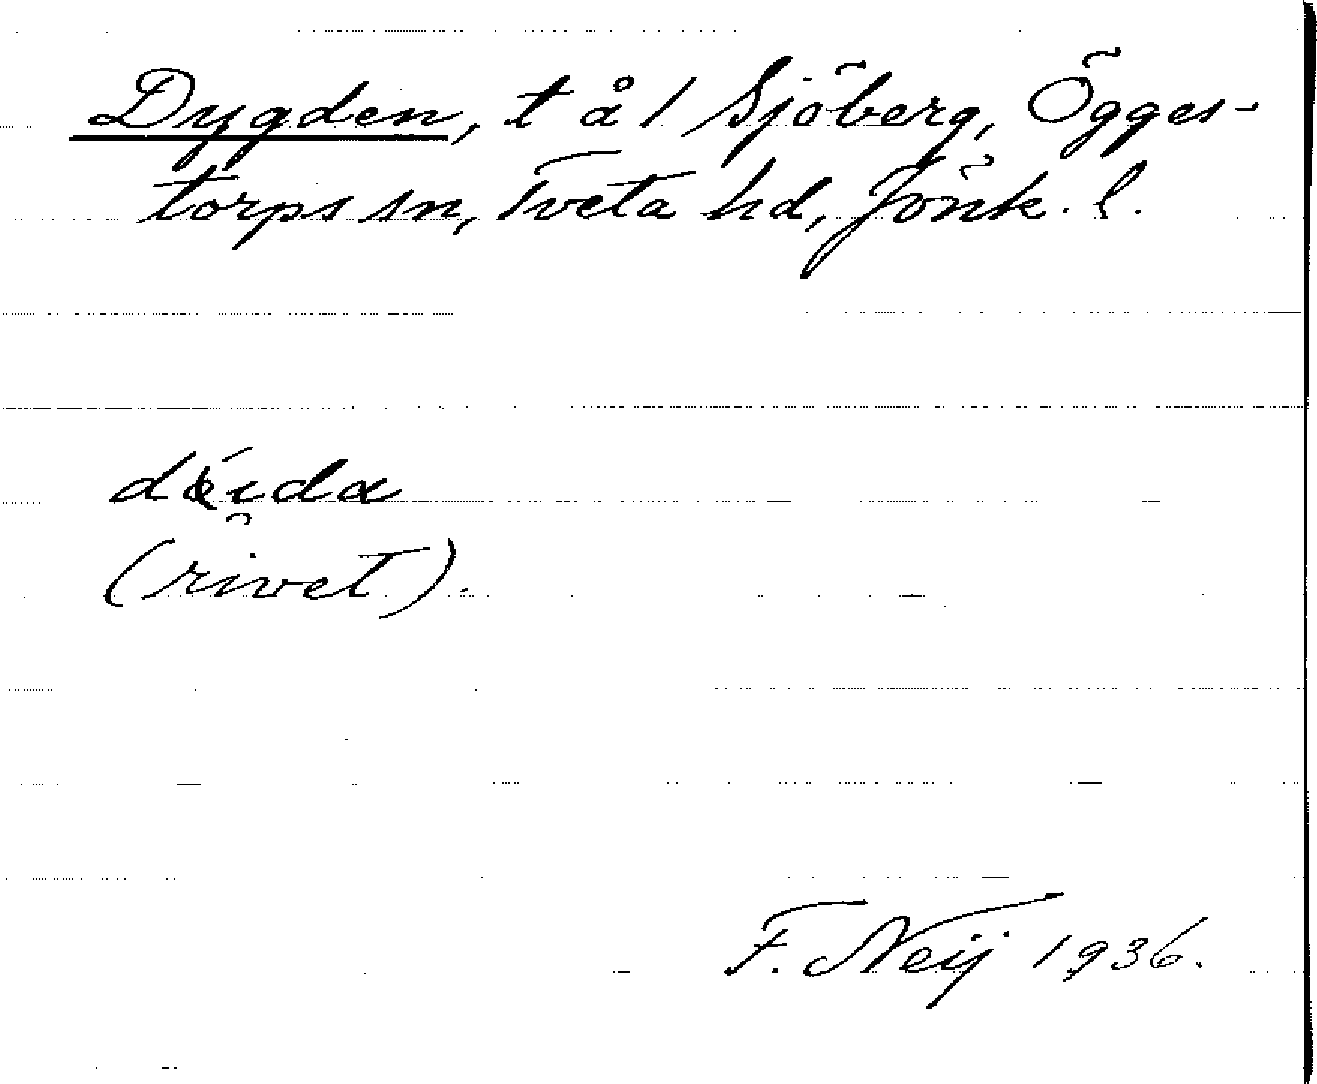 Dygden, t å / Sjöberg, Ögges-
torps sn, Tveta hd, Jönk. l.
(rivet).
F. Neij 1936.